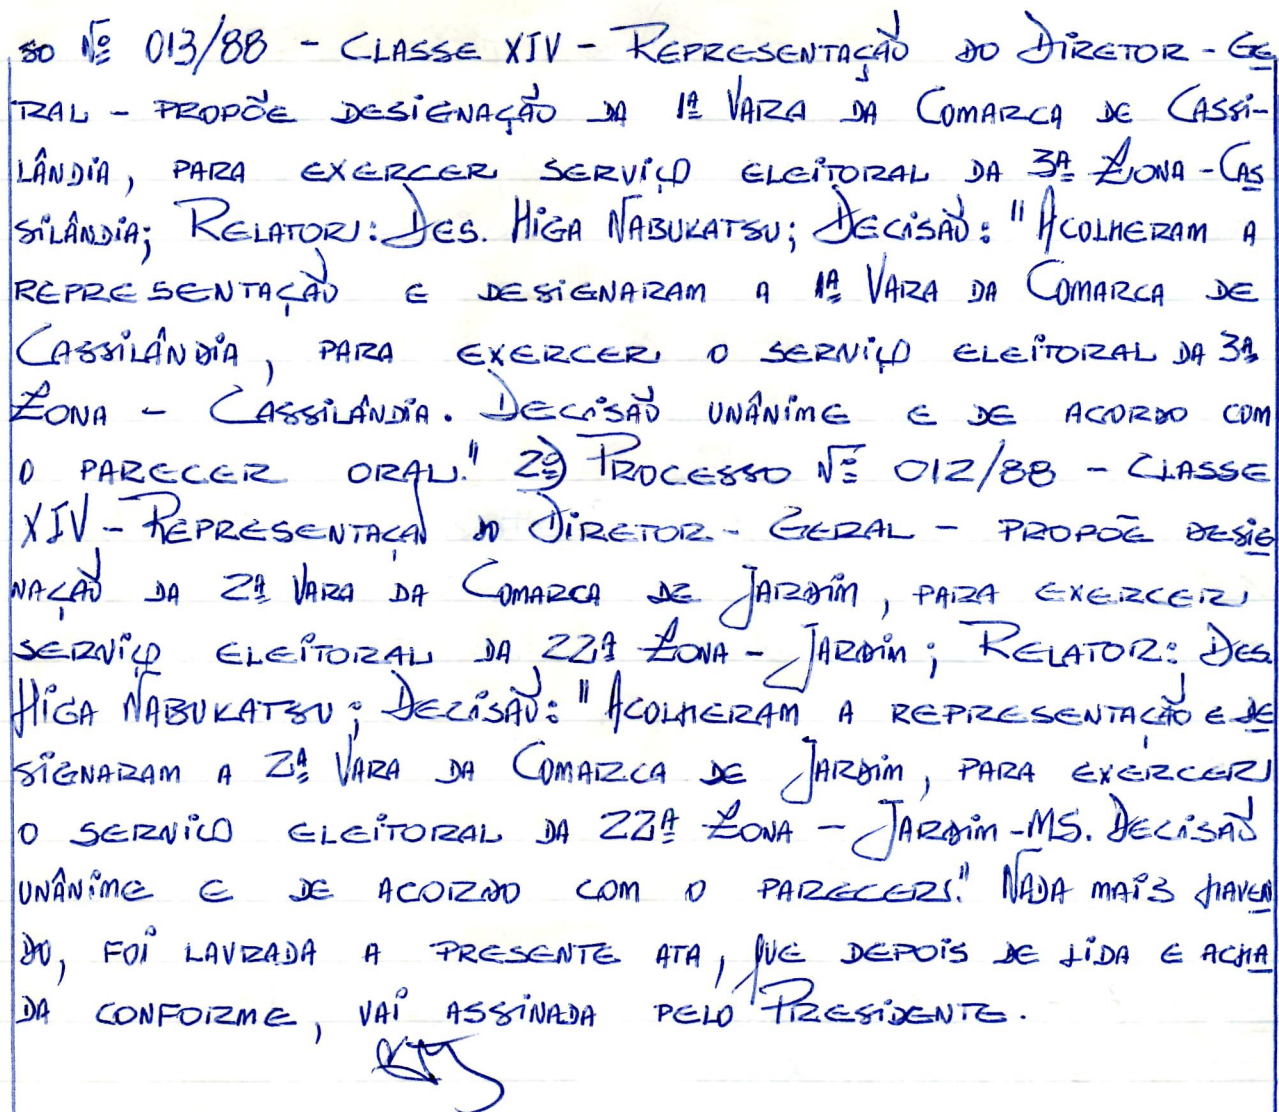 so Nº 013/88 - CLASSE XIV - REPRESENTAÇÃO DO DIRETOR - GE
RAL - PROPÕE DESIGNAÇÃO DA 1ª VARA DA COMARCA DE CASSI-
LÂNDIA, PARA EXERCER SERVIÇO ELEITORAL DA 3ª ZONA - CAS
SILÂNDIA; RELATOR: DES. HIGA NABUKATSU; DECISÃO: "ACOLHERAM A
REPRESENTAÇÃO E DESIGNARAM A 1ª VARA DA COMARCA DE
CASSILÂNDIA, PARA EXERCER O SERVIÇO ELEITORAL DA 3ª
ZONA - CASSILÂNDIA. DECISÃO UNÂNIME E DE ACORDO COM
O PARECER ORAL." 2º) PROCESSO Nº 012/88 - CLASSE
XIV - REPRESENTAÇÃO DO DIRETOR - GERAL - PROPÕE DESIG
NAÇÃO DA 2ª VARA DA COMARCA DE JARDIM, PARA EXERCER
SERVIÇO ELEITORAL DA 22ª ZONA - JARDIM; RELATOR: DES.
HIGA NABUKATSU; DECISÃO: "ACOLHERAM A REPRESENTAÇÃO E DE
SIGNARAM A 2ª VARA DA COMARCA DE JARDIM, PARA EXERCER
O SERVIÇO ELEITORAL DA 22ª ZONA - JARDIM - MS. DECISÃO
UNÂNIME E DE ACORDO COM O PARECER." NADA MAIS HAVEN
DO, FOI LAVRADA A PRESENTE ATA, QUE DEPOIS DE LIDA E ACHA
DA CONFORME, VAI ASSINADA PELO PRESIDENTE.